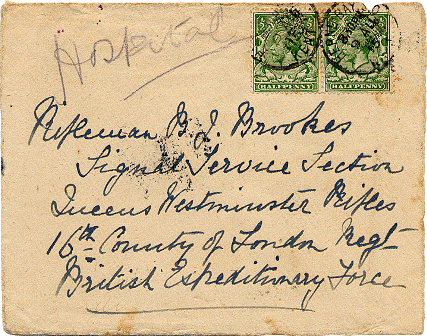 Hospital
HALFPENNY HALFPENNY
Rifleman B. J. Brookes
Signal Service Section
Queens Westminster Rifles
16th County of London Regt
British Expeditionary Force